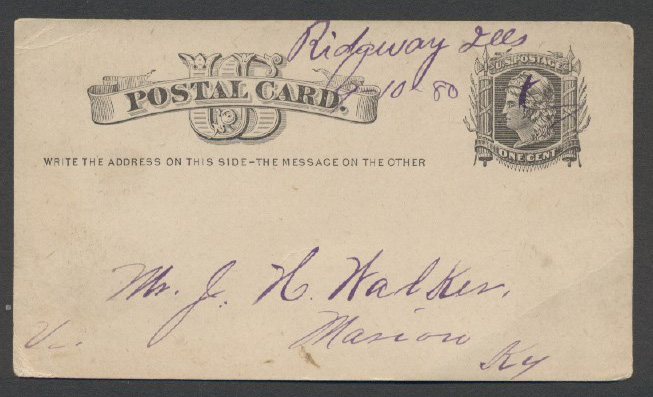 Ridgway Ills
10-80
U.S. POSTAGE
US
POSTAL CARD.
ONE CENT
WRITE THE ADDRESS ON THIS SIDE-THE MESSAGE ON THE OTHER
Mr. J. H. Walker.
Marion
Ky